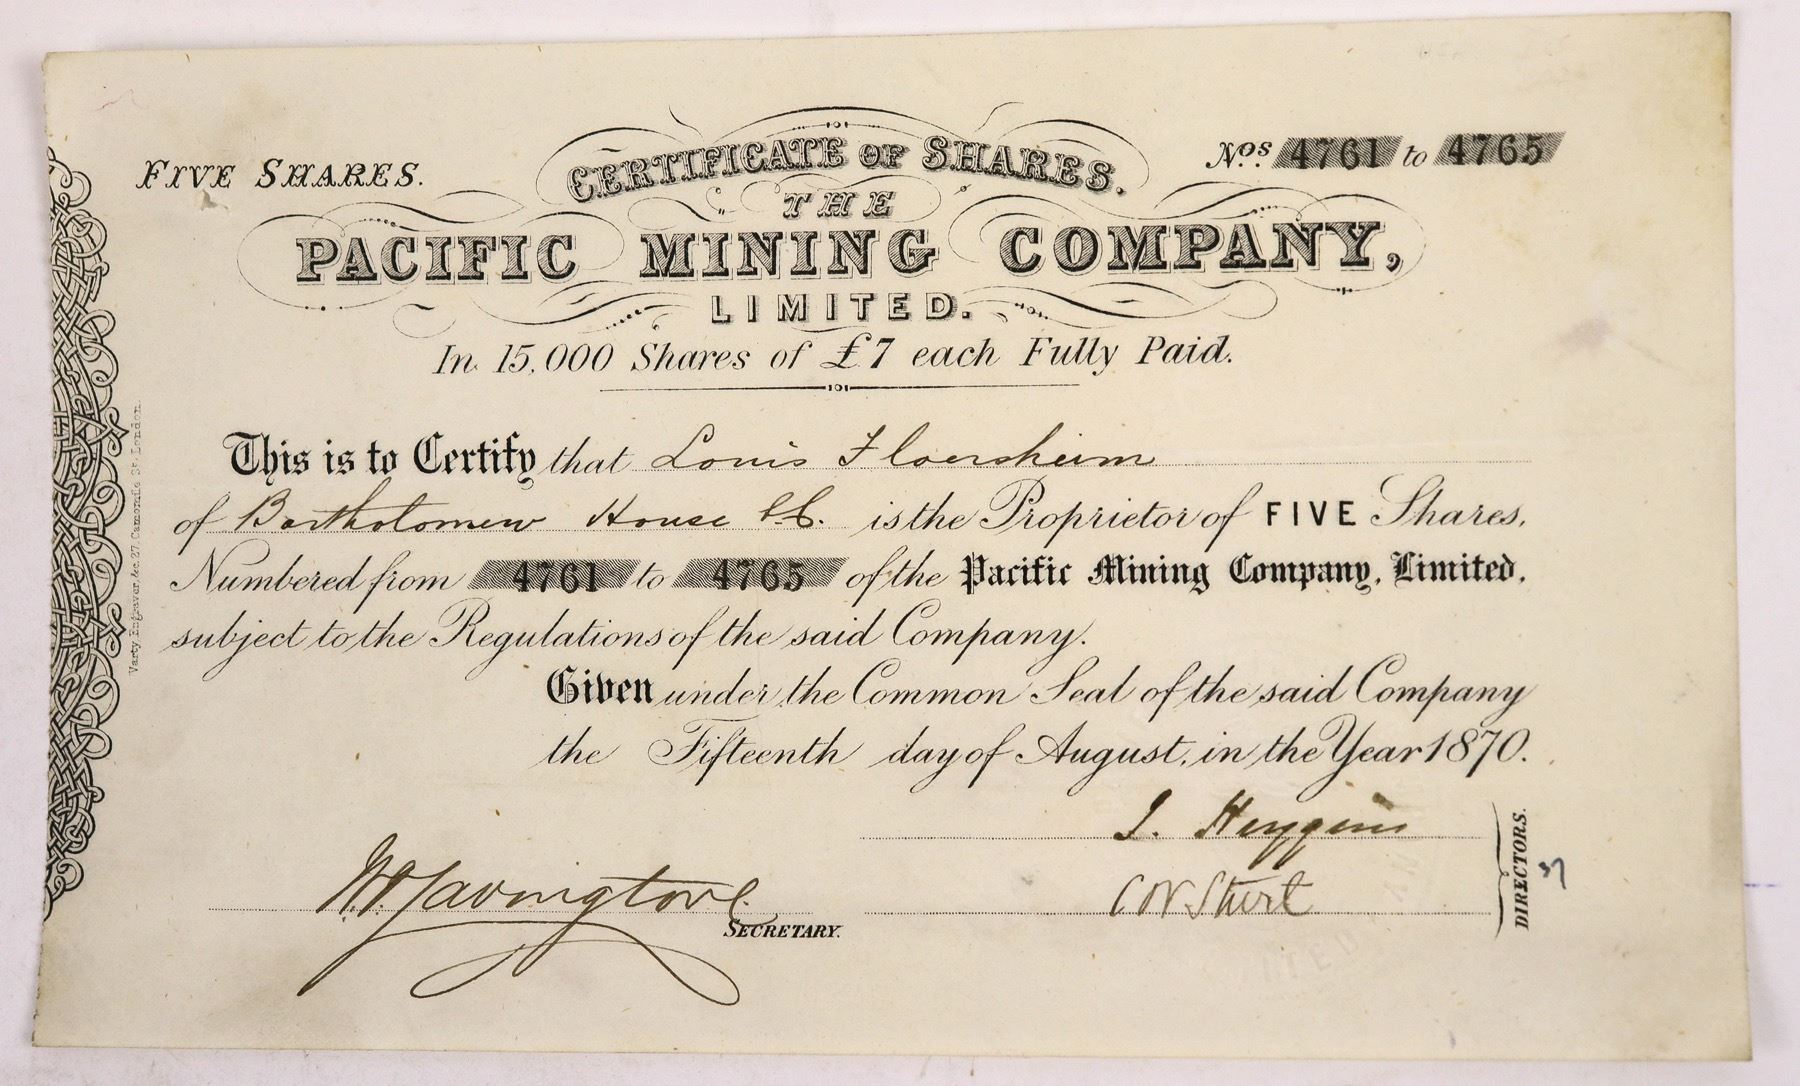 FIVE SHARES.
Nos. 4761 to 4765
CERTIFICATE OF SHARES.
THE
PACIFIC MINING COMPANY,
LIMITED.
In 15,000 Shares of £7 each Fully Paid.
This is to Certify that Louis Floersheim
of Bartholomew House E.C. is the Proprietor of FIVE Shares,
Numbered from 4761 to 4765 of the Pacific Mining Company, Limited,
subject to the Regulations of the said Company.
Given under the Common Seal of the said Company
the Fifteenth day of August, in the Year 1870.
C W Sturt
SECRETARY.
DIRECTORS.
37
Varty, Engraver, &c. 27, Camomile St. London.